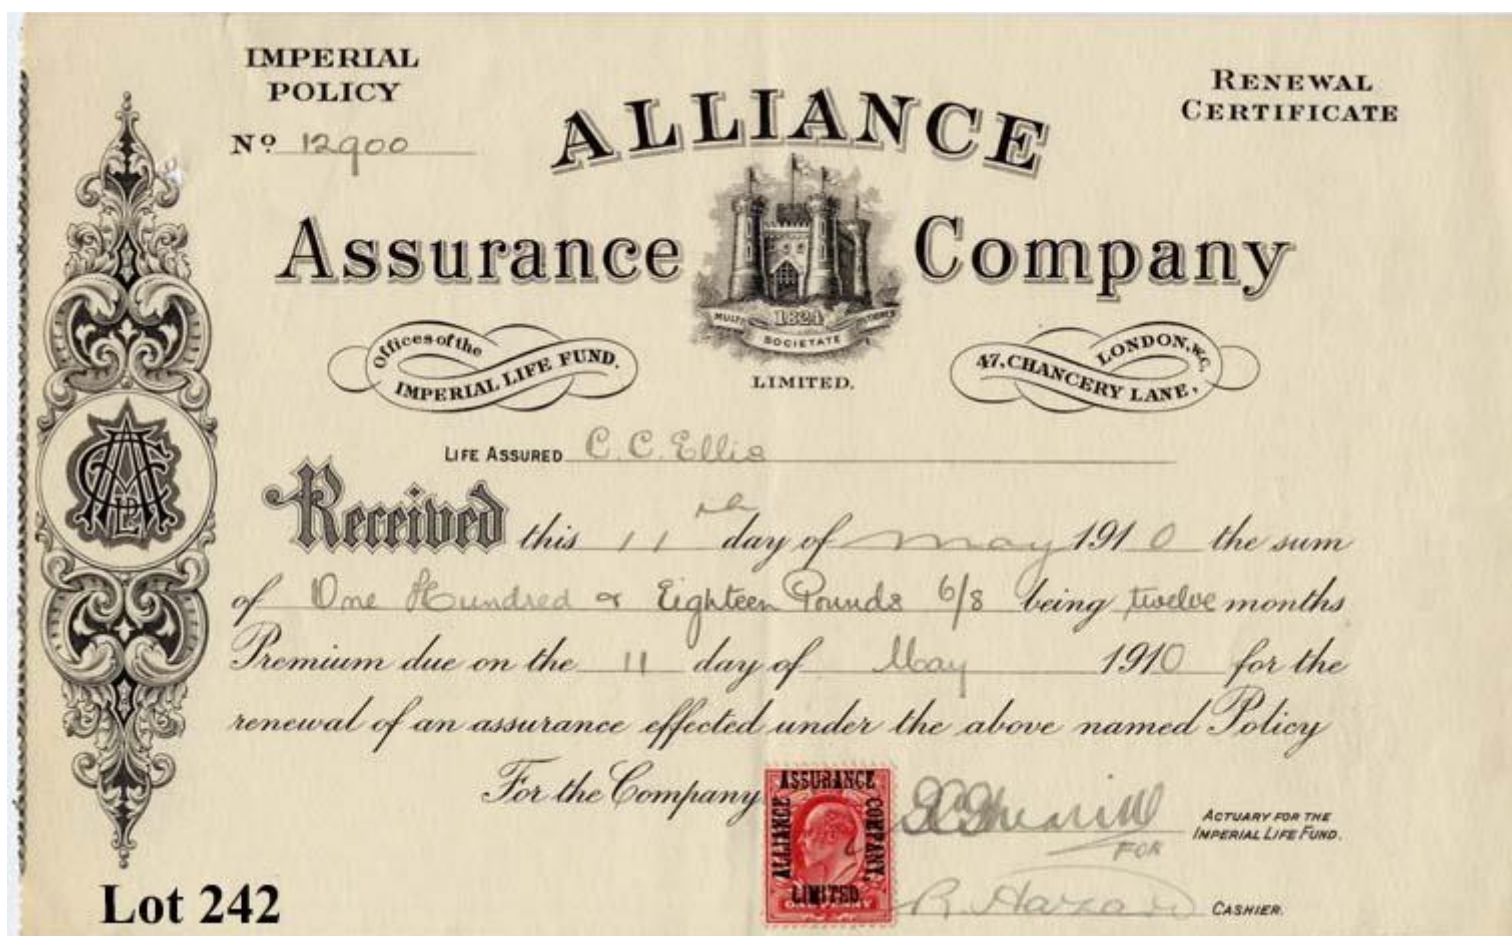 IMPERIAL
POLICY
Nº 12900
RENEWAL
CERTIFICATE
ALLIANCE
Assurance Company
MULTI 1824
SOCIETATE
LIMITED.
Offices of the
IMPERIAL LIFE FUND.
47, CHANCERY LANE,
LONDON, W.C.
LIFE ASSURED C. C. Ellis
Received this 11th day of May 1910 the sum
of One Hundred & Eighteen Pounds 6/8 being twelve months
Premium due on the 11 day of May 1910 for the
renewal of an assurance effected under the above named Policy
For the Company
ALLIANCE ASSURANCE COMPANY, LIMITED
ACTUARY FOR THE
IMPERIAL LIFE FUND.
FOR
R. Hazard CASHIER.
Lot 242